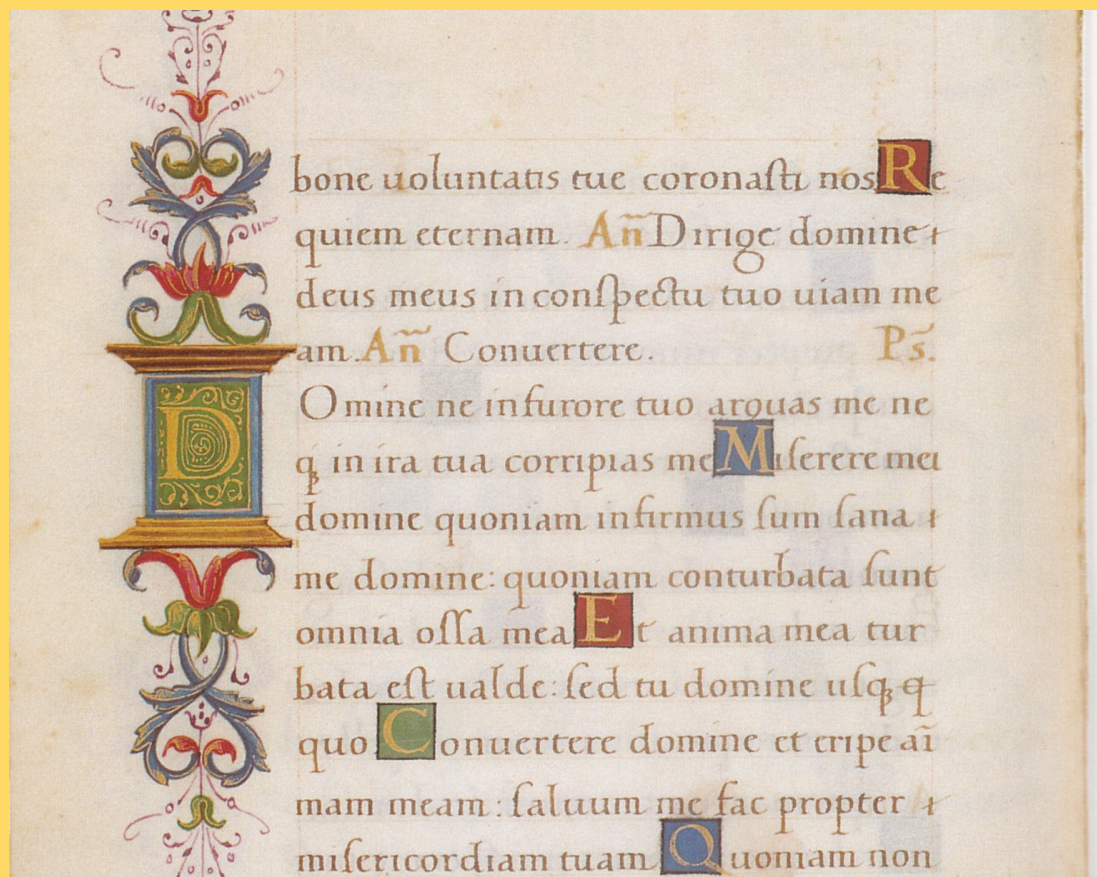 bone uoluntatis tue coronasti nos Re
quiem eternam. Añ Dirige domine
deus meus in conspectu tuo uiam me
am. Añ Conuertere. Ps.
DOmine ne in furore tuo arguas me ne
q̃ in ira tua corripias me Miserere mei
domine quoniam infirmus sum sana
me domine: quoniam conturbata sunt
omnia ossa mea Et anima mea tur
bata est ualde: sed tu domine usq̃ q̃
quo Conuertere domine et eripe aĩ
mam meam: saluum me fac propter
misericordiam tuam Quoniam non